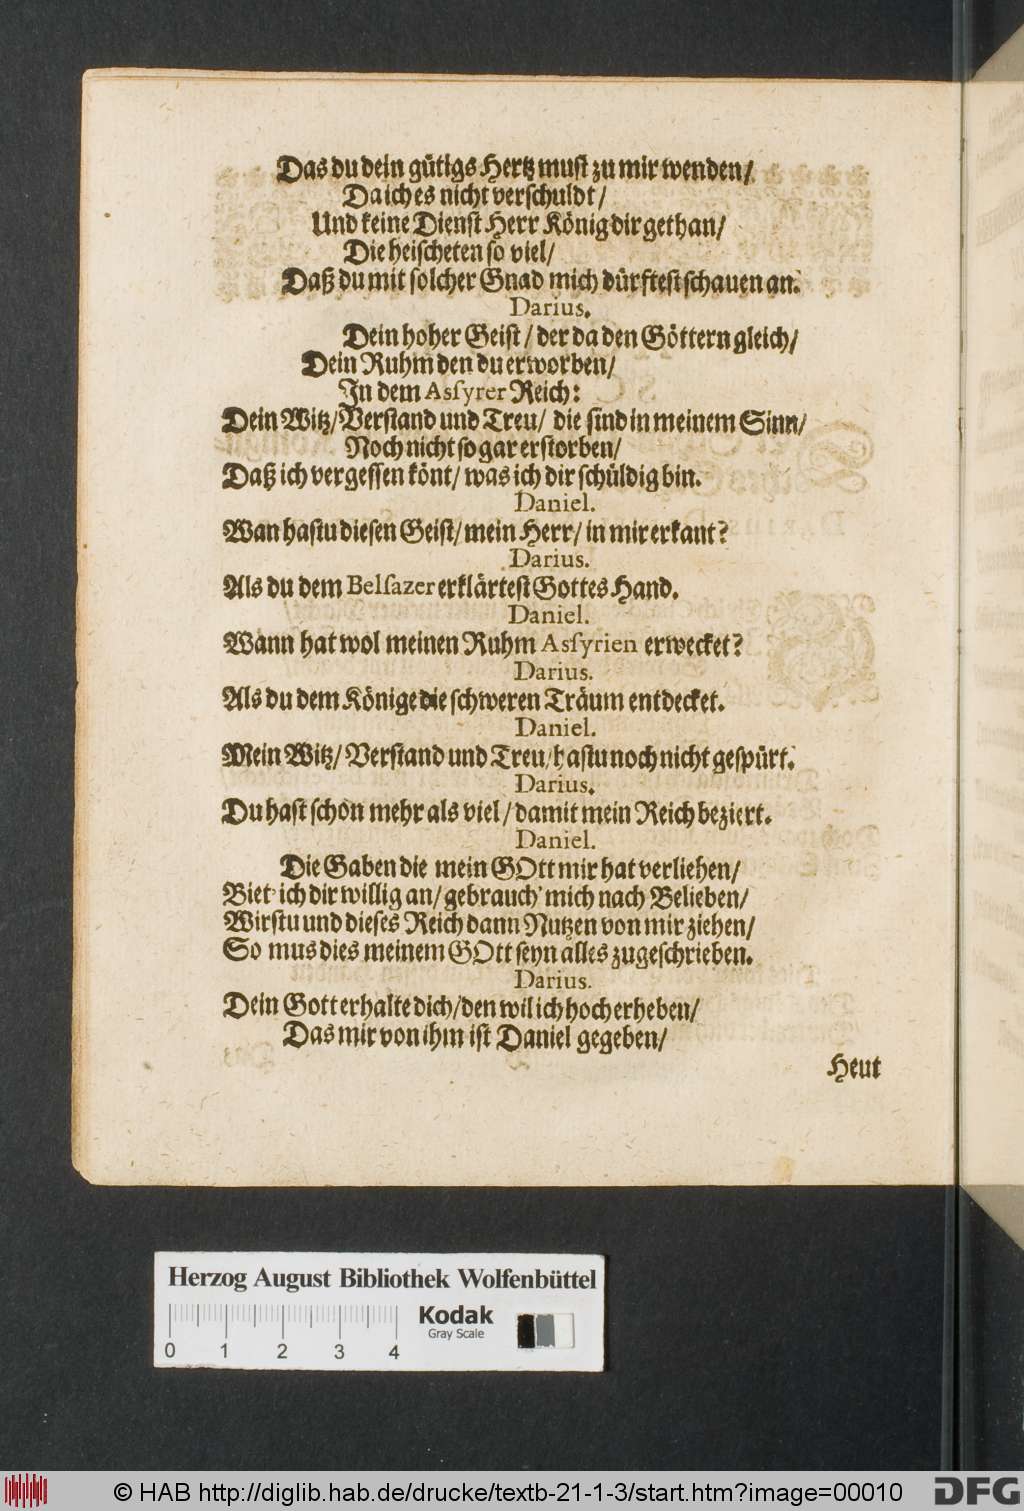 Das du dein gütigs Hertz must zu mir wenden/
Da ich es nicht verschuldt/
Und keine Dienst Herr König dir gethan/
Die heischeten so viel/
Daß du mit solcher Gnad mich dürftest schauen an.
Darius.
Dein hoher Geist/ der da den Göttern gleich/
Dein Ruhm den du erworben/
In dem Assyrer Reich:
Dein Witz/ Verstand und Treu/ die sind in meinem Sinn/
Noch nicht so gar erstorben/
Daß ich vergessen könt/ was ich dir schüldig bin.
Daniel.
Wan hastu diesen Geist/ mein Herr/ in mir erkant?
Darius.
Als du dem Belsazer erklärtest Gottes Hand.
Daniel.
Wann hat wol meinen Ruhm Assyrien erwecket?
Darius.
Als du dem Könige die schweren Träum entdecket.
Daniel.
Mein Witz/ Verstand und Treu/ hastu noch nicht gespürt.
Darius.
Du hast schon mehr als viel/ damit mein Reich beziert.
Daniel.
Die Gaben die mein GOtt mir hat verliehen/
Biet' ich dir willig an/ gebrauch' mich nach Belieben/
Wirstu und dieses Reich dann Nutzen von mir ziehen/
So mus dies meinem GOtt seyn alles zugeschrieben.
Darius.
Dein Gott erhalte dich/ den wil ich hoch erheben/
Das mir von ihm ist Daniel gegeben/
Heut
Herzog August Bibliothek Wolfenbüttel
Kodak
Gray Scale
0 1 2 3 4
© HAB http://diglib.hab.de/drucke/textb-21-1-3/start.htm?image=00010
DFG